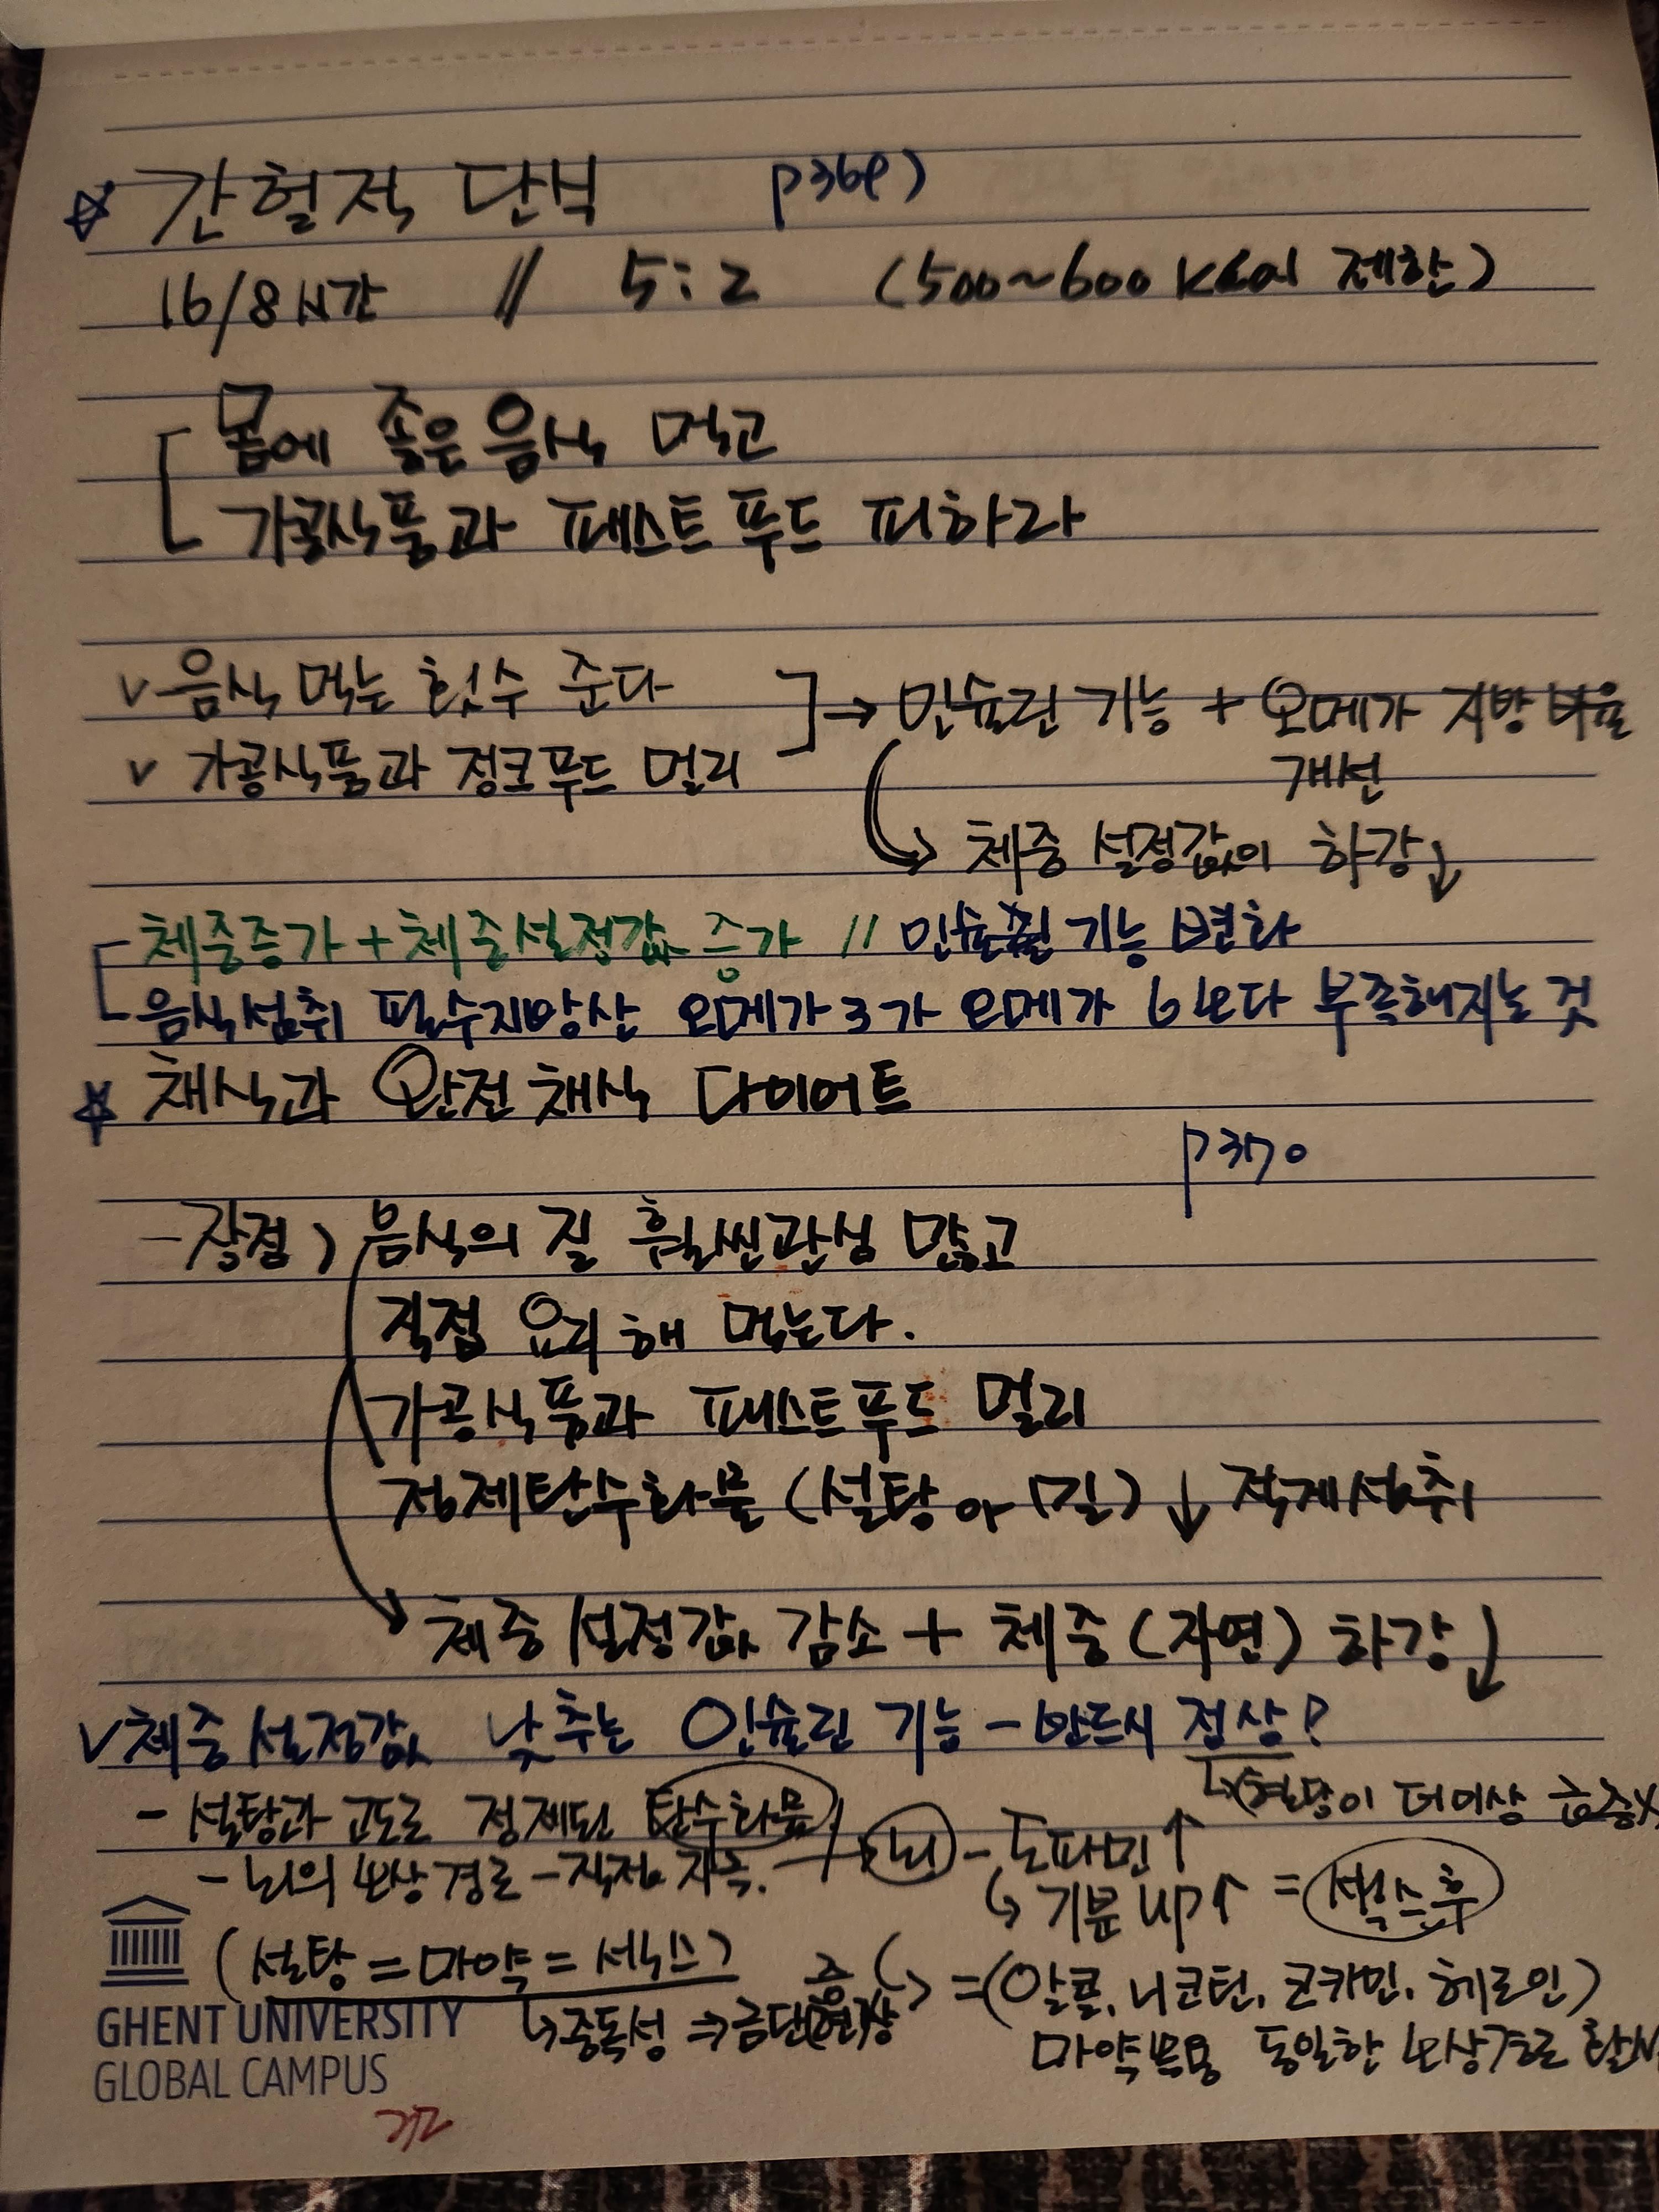 ☆ 간헐적 단식 p369)
16/8시간 // 5:2 (500~600 kcal 제한)
몸에 좋은 음식 먹고
가공식품과 패스트푸드 피하라
v 음식 먹는 횟수 준다
v 가공식품과 정크푸드 멀리
→ 인슐린 기능 + 오메가 지방 비율
개선
↳ 체중 설정값이 하강↓
체중증가 + 체중설정값 증가 // 인슐린 기능 변화
음식섭취 필수지방산 오메가 3가 오메가 6보다 부족해지는 것
☆ 채식과 완전 채식 다이어트
p370
- 장점) 음식의 질 훨씬 관심 많고
직접 요리해 먹는다.
가공식품과 패스트푸드 멀리
정제탄수화물 (설탕 이나 밀) ↓ 적게 섭취
체중 설정값 감소 + 체중 (자연) 하강↓
v 체중 설정값 낮추는 인슐린 기능 - 반드시 정상?
↳ 혈당이 더이상 급증X
- 설탕과 고도로 정제된 탄수화물
- 뇌의 보상 경로 - 직접 자극. → 뇌 - 도파민↑
↳ 기분 UP↑ = 섹스후
(설탕 = 마약 = 섹스)
↳ 중독성 ⇒ 금단증상
↳ = (알콜, 니코틴, 코카인, 헤로인)
마약복용 동일한 보상경로
GHENT UNIVERSITY
GLOBAL CAMPUS